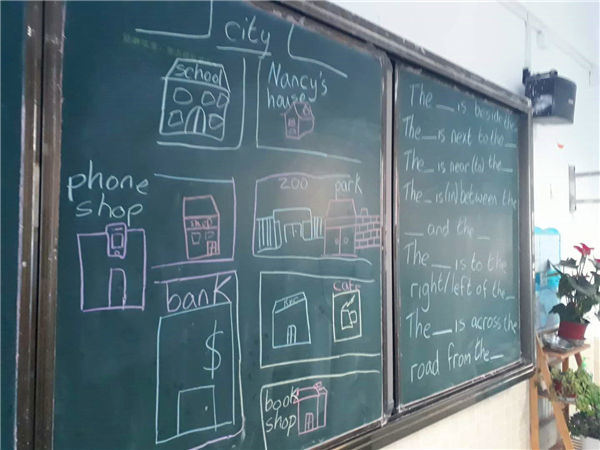 city
school
Nancy's
house
phone
shop
shop
zoo
park
bank
$
cafe
book
shop
The __ is beside the
The __ is next to the __
The __ is near (to) the __
The __ is (in) between the
__ and the __
The __ is to the
right/left of the __
The __ is across the
road from the __